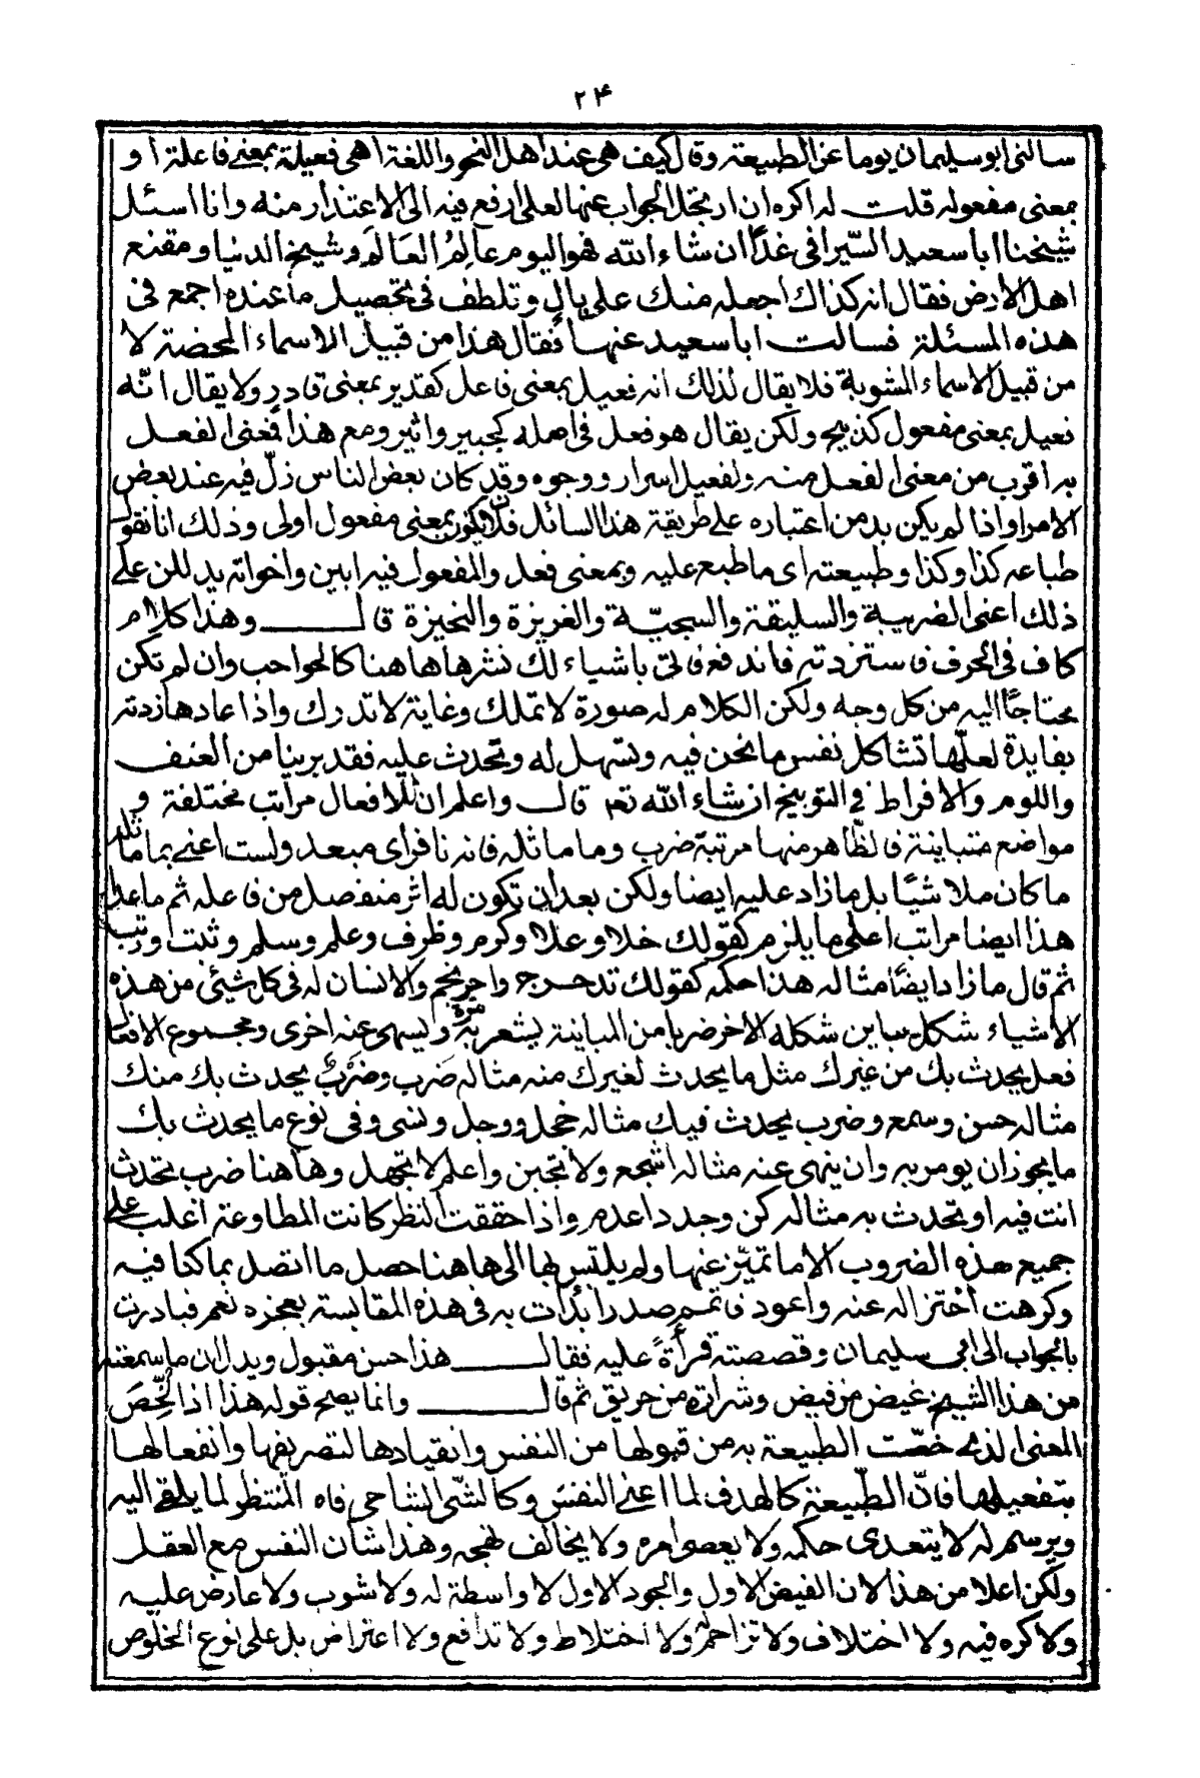 ٢٤
سالنى ابو سليمان يوما عن الطبيعة وقال كيف هى عند اهل النحو واللغة اهى فعيلة بمعنى فاعلة او
بمعنى مفعوله قلت له اكره ان ارتجل الجواب عنها لعلى ارفع فيه الى الاعتذار منه وانا اسئل
شيخنا ابا سعيد السيرافى غدًا ان شاء الله فهو اليوم عالِمُ العَالَم وشيخ الدنيا ومقنع
اهل الارض فقال انه كذاك اجعله منك على بالٍ وتلطف فى تحصيل ما عنده اجمع فى
هذه المسئلة فسالت ابا سعيد عنها فقال هذا من قبيل الاسماء المحضة لا
من قبيل الاسماء المشوبة فلا يقال لذلك انه فعيل بمعنى فاعل كقدير بمعنى قادرٍ ولا يقال انّه
فعيل بمعنى مفعول كذبيح ولكن يقال هو فعل فى اصله كجبير واثير ومع هذا فمعنى الفعل
به اقرب من معنى الفعل منه ولفعيل اسرار ووجوه وقد كان بعض الناس زلّ فيه عند بعض
الامرا واذا لم يكن بد من اعتباره على طريقة هذا السائل فلان يكون بمعنى مفعول اولى وذلك انا نقول
طباعه كذا وكذا وطبيعته اى ما طبع عليه وبمعنى فعل والمفعول فيه ابين واخواته يدللن على
ذلك اعنى الضريبة والسليقة والسجيّة والغريزة والنحيزة قال وهذا كلام
كاف فى الحرف فاستزدته فاندفع فاتى باشياء لك نثرها هاهنا كالحواحب وان لم تكن
محتاجًا اليه من كل وجه ولكن الكلام له صورة لا تملك وغاية لا تدرك واذا عادها زدته
بفايدة لعلّها تشاكل نفس ما نحن فيه وتسهل له وتحدث عليه فقد برينا من العنف
واللوم والافراط في التوبيخ ان شاء الله تعم قال واعلم ان للافعال مراتب مختلفة و
مواضع متباينة فالظّاهر منها مرتبة ضرب وما ماثله فانه نافراى مبعد ولست اعنى بما ماثله
ما كان ملاشيًا بل ما زاد عليه ايضا ولكن بعد ان تكون له اثر منفصل من فاعله ثم ما عدا
هذا ايضا مراتب اعلى ما يلزم كقولك خلا وعلا وكرم وظرف وعلم وسلم وثبت ورتب
ثم قال ما زاد ايضًا مثاله هذا حكمه كقولك تدحرج واحرنجم والانسان له فى كل شيئى من هذه
الاشياء شكل يباين شكله الاخر ضربا من المباينة يشعر به مرة ويسهى عنه اخرى ومجموع الافعال
فعل يحدث بك من غيرك مثل ما يحدث لغيرك منه مثاله ضَرب وضَرْبٌ يحدث بك منك
مثاله حسن وسمع وضرب يحدث فيك مثاله خجل ووجل ونسى وفى نوع ما يحدث بك
ما يجوز ان يومر به وان ينهى عنه مثاله اشجع ولا تجبن واعلم لا تجهل وهاهنا ضرب تحدث
انت فيه او تحدث به مثاله كن وجد داعدم واذا حققت النظر كانت المطاوعة اغلب على
جميع هذه الضروب الا ما تميّز عنها ولم يلتبس بها الى هاهنا حصل ما اتصل بما كنا فيه
وكرهت اختزاله عنه واعود فاتمم صدرا بدأت به فى هذه المقابسة بعجزه نعم فبادرت
بالجواب الى ابى سليمان وقصصته قرأةً عليه فقال هذا حسن مقبول ويدل ان ما سمعته
من هذا الشيخ غيض من فيض وشرارة من حريق ثم قال وانما يصح قوله هذا اذا لُخِّصَ
المعنى الذى خصّت الطبيعة به من قبولها من النفس وانقيادها لتصريفها وانفعالها
بتفعيلها فانّ الطّبيعة كالهدف لما اعنى النفس وكالشى الشاحى فاه المنتظر لما يلقى اليه
ويرسم له لا يتعدى حكمه ولا يعصى امره ولا يخالف نهجه وهذا شان النفس مع العقل
ولكن اعلا من هذا لان الفيض الاول والجود الاول لا واسطة له ولا شوب ولا عارض عليه
ولا كره فيه ولا اختلاف ولا تزاحم ولا اختلاط ولا تدافع ولا اعتراض بل على نوع الخلوص